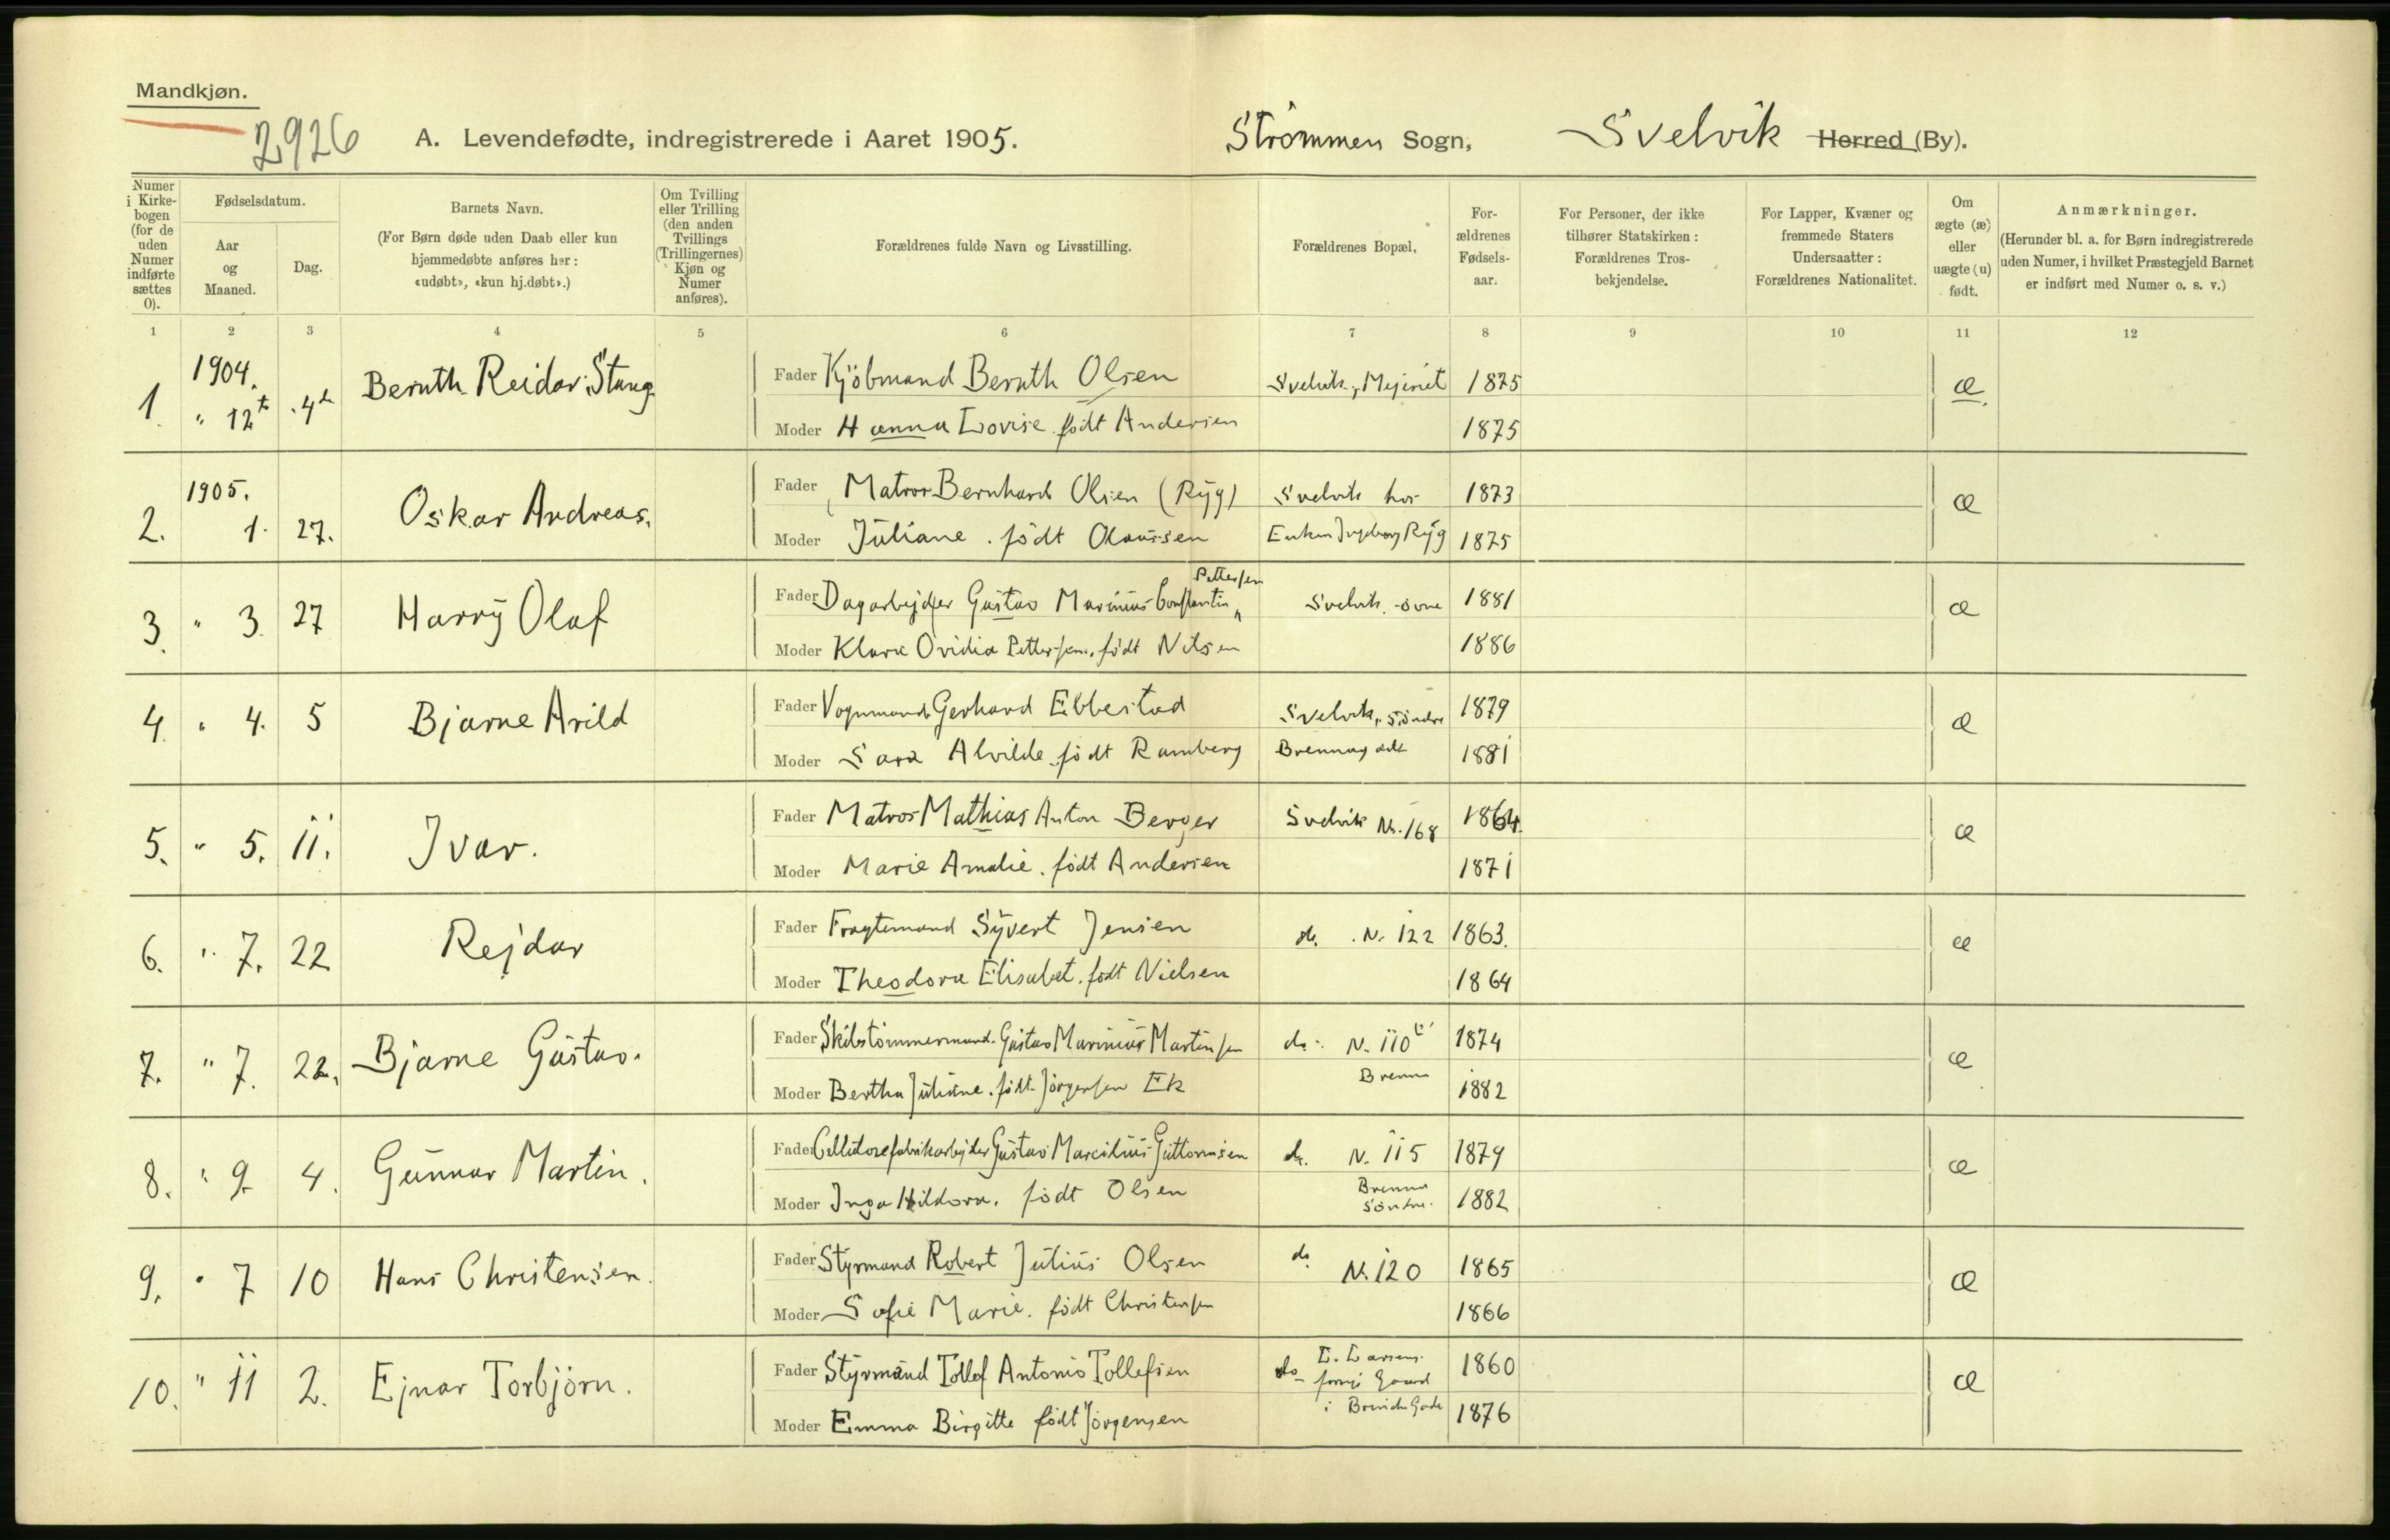 Mandkjøn.
2926
A. Levendefødte, indregistrerede i Aaret 1905.
Strömmen Sogn, Svelvik Herred (By).
Numer i Kirkebogen (for de uden Numer indførte sættes 0).
Fødselsdatum.
Aar og Maaned.
Dag.
Barnets Navn.
(For Børn døde uden Daab eller kun hjemmedøbte anføres her: «udøbt», «kun hj.døbt».)
Om Tvilling eller Trilling (den anden Tvillings (Trillingernes) Kjøn og Numer anføres).
Forældrenes fulde Navn og Livsstilling.
Forældrenes Bopæl.
Forældrenes Fødselsaar.
For Personer, der ikke tilhører Statskirken: Forældrenes Trosbekjendelse.
For Lapper, Kvæner og fremmede Staters Undersaatter: Forældrenes Nationalitet.
Om ægte (æ) eller uægte (u) født.
Anmærkninger.
(Herunder bl. a. for Børn indregistrerede uden Numer, i hvilket Præstegjeld Barnet er indført med Numer o. s. v.)
1 2 3 4 5 6 7 8 9 10 11 12
1904.
1. " 12te 4de Bernth Reidar Stang Fader Kjöbmand Bernth Olsen Svelvik, Mejeriet 1875 æ.
Moder Hanna Lovise født Andersen 1875
1905.
2. 1. 27. Oskar Andreas. Fader Matros Bernhard Olsen (Ryg) Svelvik hos 1873 æ
Moder Juliane. født Olaussen Enken Ingeborg Ryg 1875
Pettersen
3. " 3. 27 Harry Olaf Fader Dagarbejder Gustav Marinius Constantin Svelvik 1881 æ
Moder Klara Ovidia Pettersen. født Nilsen 1886
4. " 4. 5 Bjarne Arild Fader Vognmand Gerhard Ebbestad Svelvik, Söndre 1879 æ
Moder Sara Alvilde født Ramberg 1881
5. " 5. 11. Ivar. Fader Matros Mathias Anton Berger Svelvik Nr. 168 1864. æ
Moder Marie Amalie. født Andersen 1871
6. " 7. 22 Rejdar Fader Fragtemand Syvert Jensen do. N. 122 1863. æ
Moder Theodora Elisabet. født Nielsen 1864
7. " 7. 22. Bjarne Gustav. Fader Skibstömmermand Gustav Marinius Martinsen do. N. 110 b 1874 æ
Moder Bertha Juliane. født Jörgensen Ek Brenna 1882
8. " 9. 4. Gunnar Martin. Fader Cellulosefabrikarbejder Gustav Marcilius Guttormsen do. N. 115 1879 æ
Moder Inga Hildora. født Olsen Brenna Söndre. 1882
9. " 7 10 Hans Christensen. Fader Styrmand Robert Julius Olsen do. N. 120 1865 æ
Moder Sofie Marie. født Christensen 1866
10. " 11 2. Ejnar Torbjörn. Fader Styrmand Tollef Antonio Tollefsen do L. Larsens 1860 æ
Gaard
Moder Emma Birgitte født Jörgensen i 1876